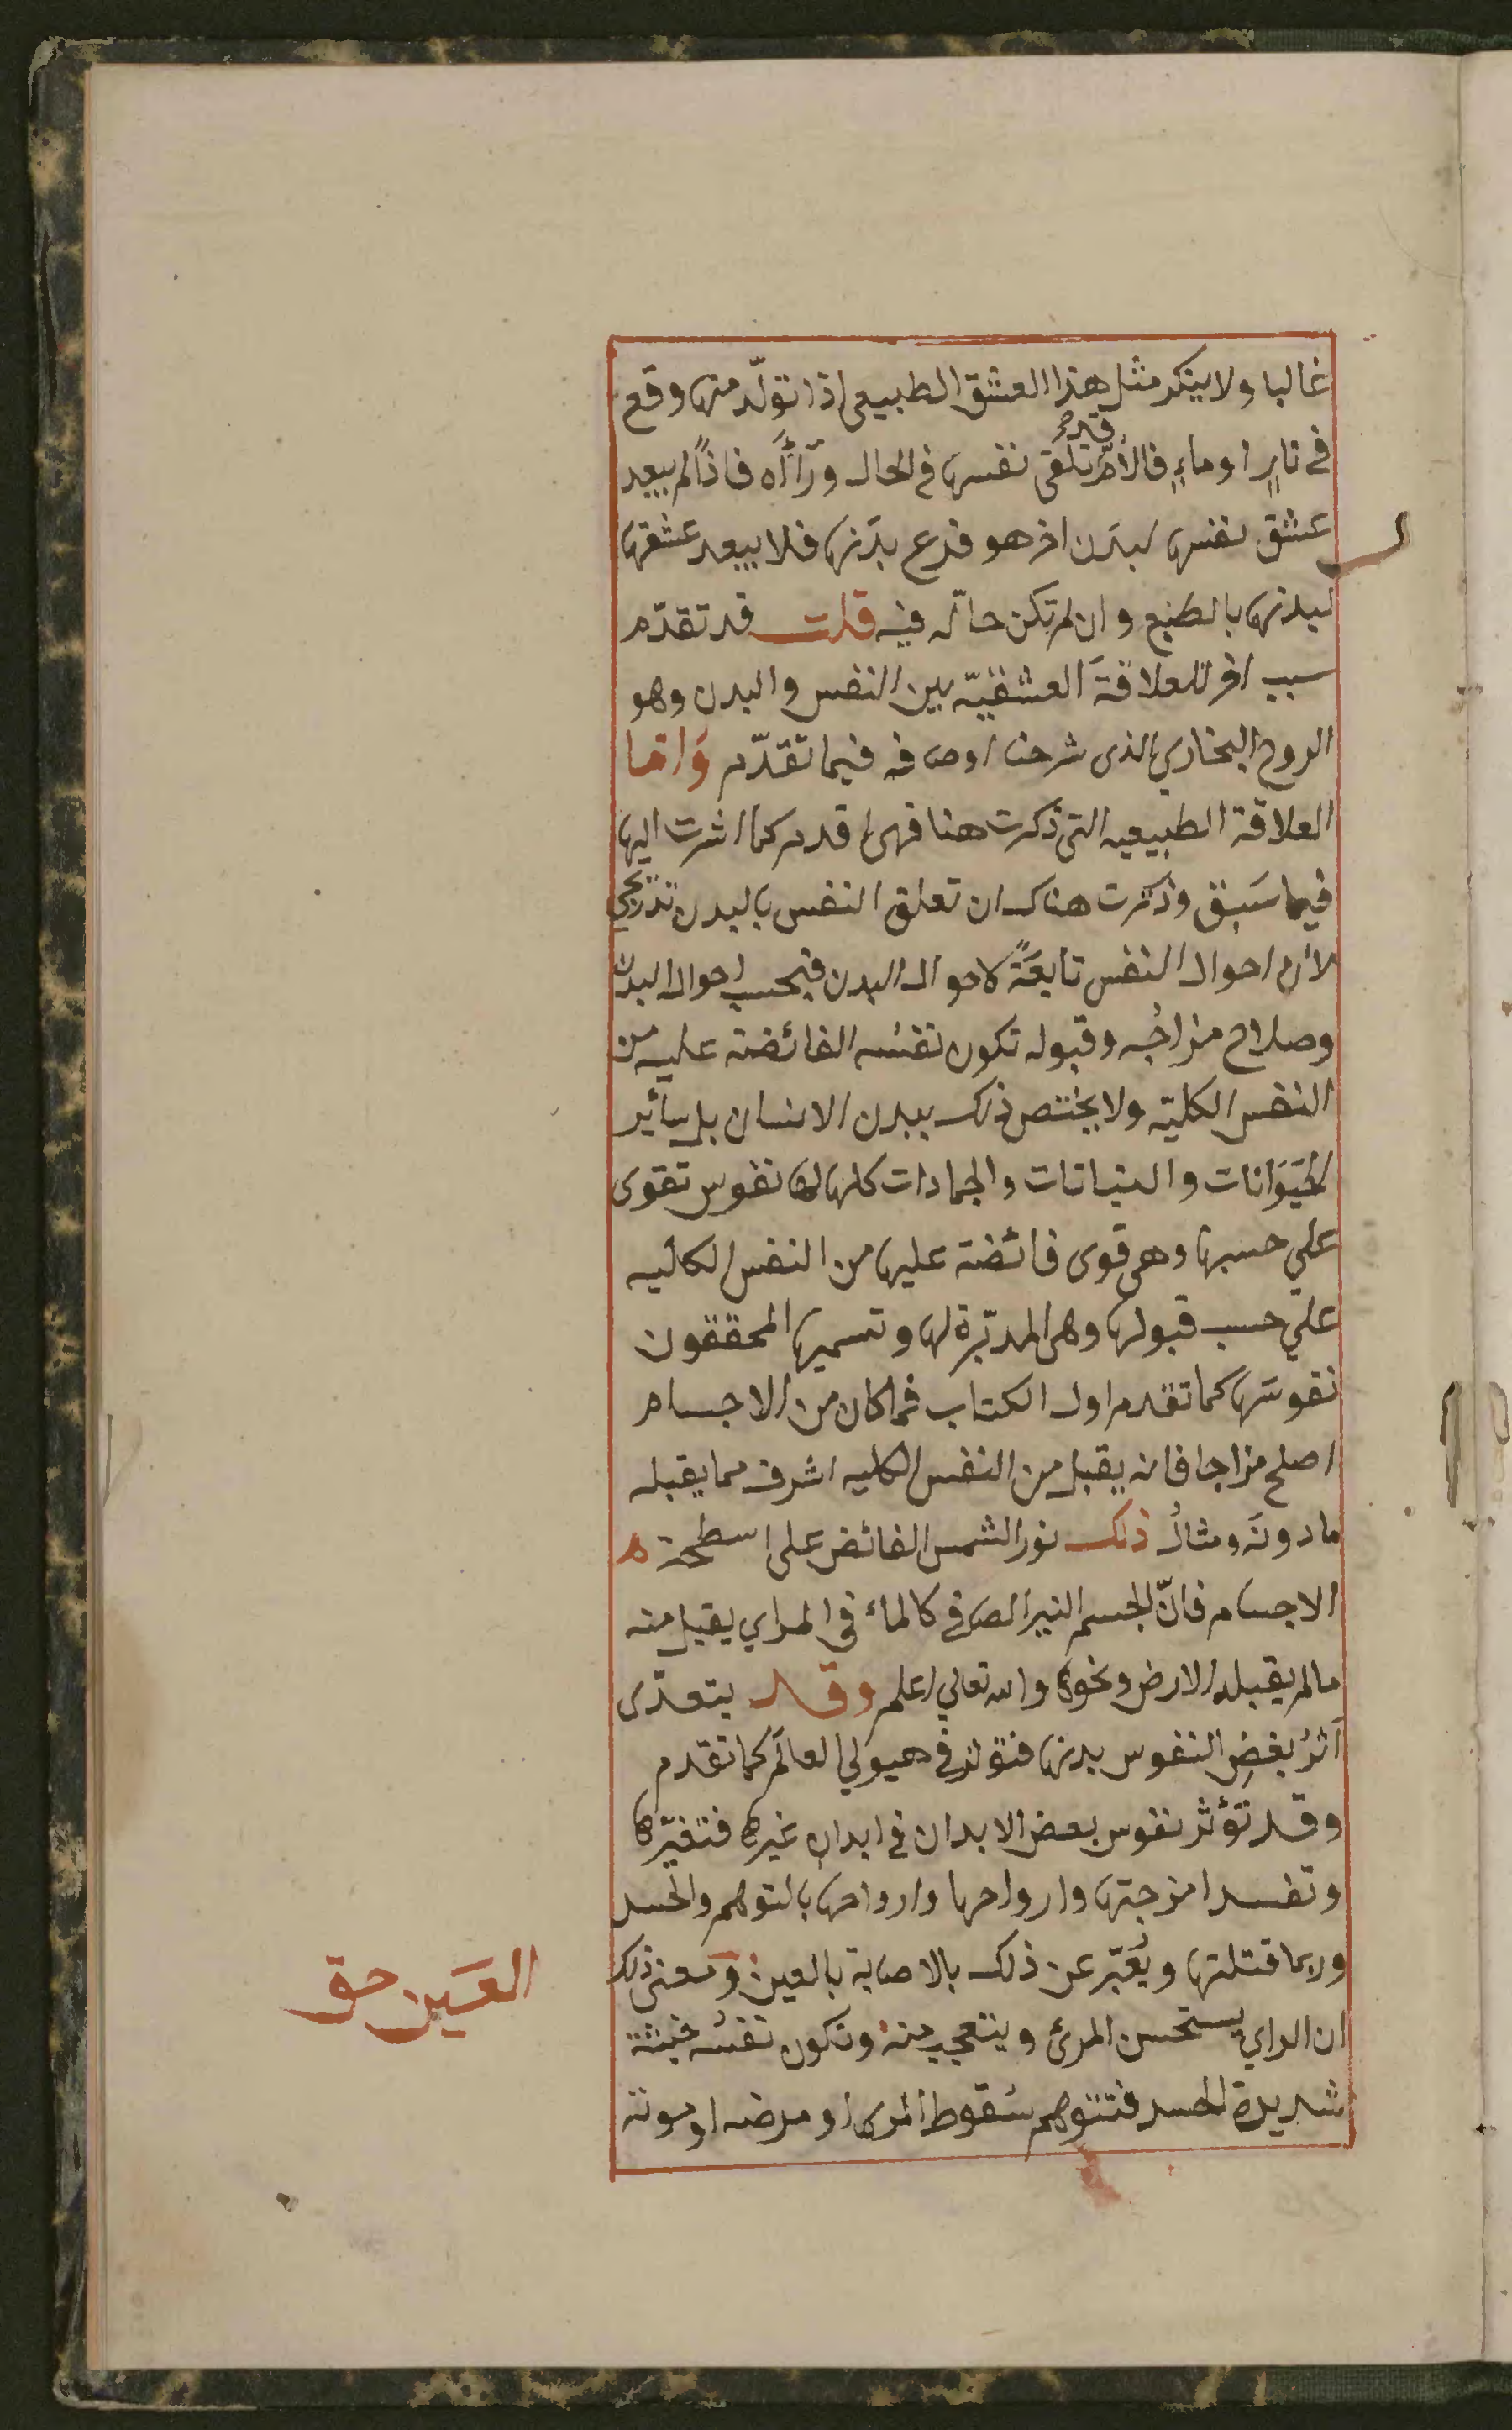 غالبا ولا ينكر مثل هذا العشق الطبيعى اذا تولّد منها وقع
فى نارٍ او ماءٍ فالأمّ قد تلقى نفسها فى الحال ورَآءَه فاذاً لم يبعد
عشق نفسها لبدن اخر هو فرع بدنها فلا يبعد عشقها
لبدنها بالطبع وان لم تكن حالّه فيه قلت قد تقدّم
سبب اخر للعلاقة العشقيّه بين النفس والبدن وهو
الروح البخاري الذى شرحنا اوصافه فيما تقدّم وَامّا
العلاقة الطبيعيه التى ذكرت هنا فهى اقدم كما اشرت اليها
فيما سَبق وذكرت هناك ان تعلق النفس بالبدن تدريجي
لأن احوال النفس تابعَةً لاحوال البدن فبحسب احوال البدن
وصلاح مزاجُه وقبوله تكون نفسُه الفائضة عليه من
النفس الكليّه ولا يختص ذلك ببدن الانسان بل سائير
الحيَوَانات والنباتات والجمادات كلها لها نفوس تقوى
علي حسبها وهى قوى فائضة عليها من النفس الكليه
علي حسب قبولها وهى المدبّرة لها وتسميها المحققون
نفوسَها كما تقدم اول الكتاب فما كان من الاجسام
اصلح مزاجا فانه يقبل من النفس الكليه اشرف مما يقبله
مادونَه ومثالُ ذلك نور الشمس الفائض على اسطحة
الاجسام فانّ الجسم النير الصَافى كالماء فى المراي يقبل منه
مالم يقبله الارض ونحوها والله تعالي اعلم وقد يتعدّى
اَثرُ بَعضِ النفوس بدنها فتؤثر فى هيولي العالَم كما تقدم
وقد تؤثر نفوس بعض الابدان فى ابدانِ غيرها فتغيّرها
وتفسد امزجتها وارواحها وارواحها بالتوهم والحسد
وربما قتلتها ويُعَبّر عن ذلك بالاصابة بالعين ومعنى ذلك
ان الراي يستحسن المرئ ويتعجب منه وتكون نفسُه خبيثة
شديدة الحسد فتتوهم سُقوط المرى او مرضه او موته
العَين حق